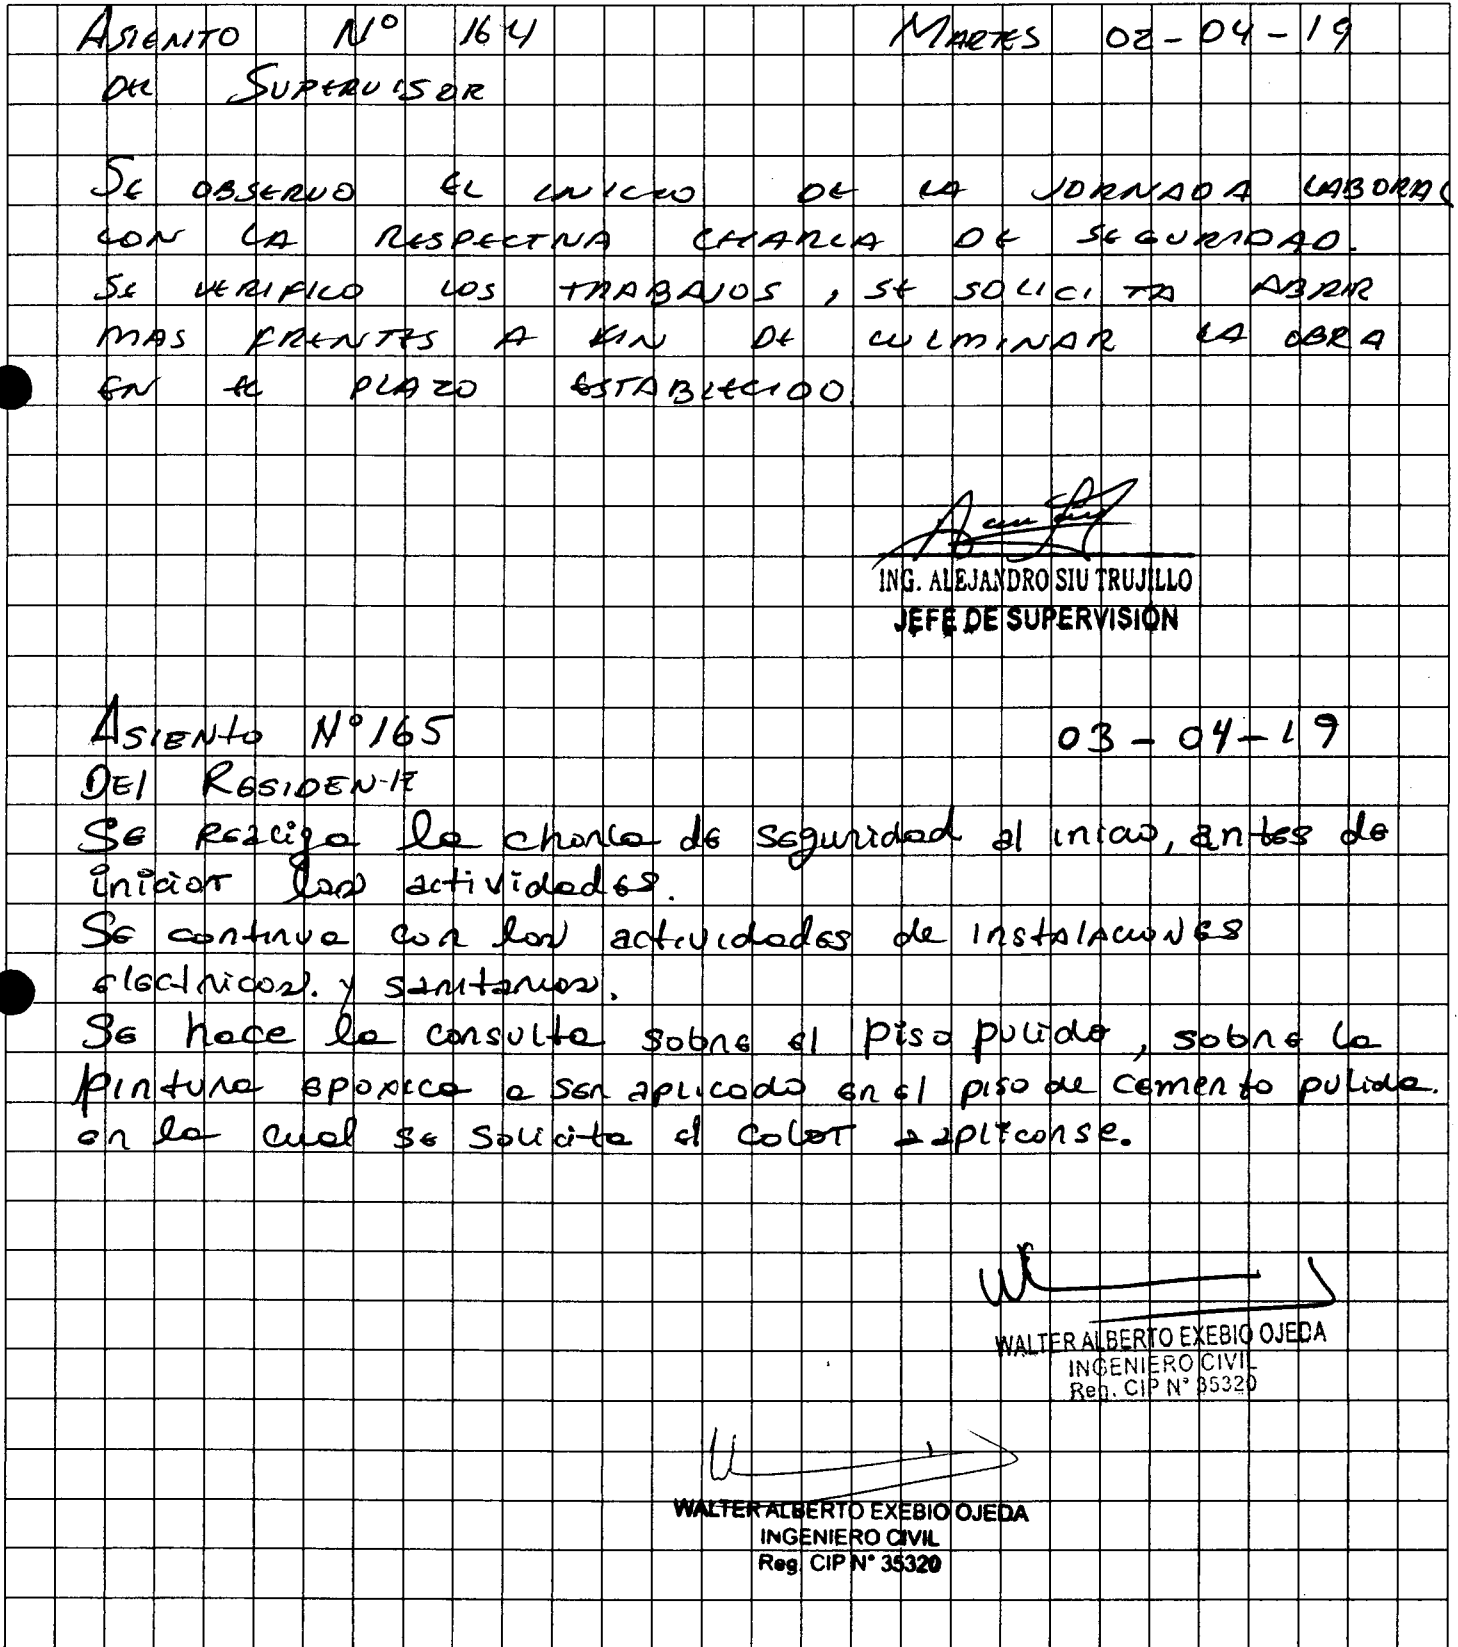 ASIENTO N° 164 MARTES 02-04-19
DEL SUPERVISOR
SE OBSERVO EL INICIO DE LA JORNADA LABORAL
CON LA RESPECTIVA CHARLA DE SEGURIDAD.
SE VERIFICO LOS TRABAJOS, SE SOLICITA ABRIR
MAS FRENTES A FIN DE CULMINAR LA OBRA
EN EL PLAZO ESTABLECIDO.
ING. ALEJANDRO SIU TRUJILLO
JEFE DE SUPERVISIÓN
ASIENTO N° 165 03-04-19
DEL RESIDENTE
Se Realiza la charla de seguridad al inicio, antes de
iniciar las actividades.
Se continua con las actividades de INSTALACIONES
electricas. y sanitarias.
Se hace la consulta sobre el piso pulido, sobre la
pintura epoxica a ser aplicado en el piso de cemento pulido.
en la cual se solicita el color a aplicarse.
WALTER ALBERTO EXEBIO OJEDA
INGENIERO CIVIL
Reg. CIP N° 35320
WALTER ALBERTO EXEBIO OJEDA
INGENIERO CIVIL
Reg. CIP N° 35320